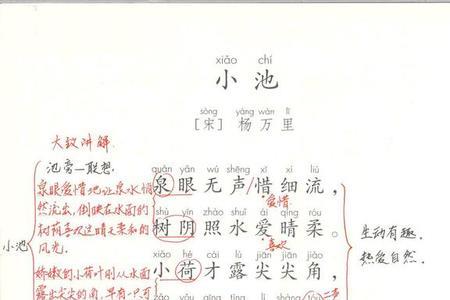 xiǎo chí
小池
sòng yáng wàn lǐ
[宋] 杨万里
大致讲解
池旁一联想
quán yǎn wú shēng xī xì liú
泉眼无声/惜细流，
爱惜
泉眼爱惜地让泉水悄
然流出，倒映在水面的
树荫喜欢这晴天柔和的
风光。
shù yīn zhào shuǐ ài qíng róu
树阴照水爱晴柔。
喜欢
小池
生动有趣.
热爱自然.
xiǎo hé cái lù jiān jiān jiǎo
小荷才露尖尖角，
娇嫩的小荷叶刚从水面
露出尖尖的角，早有一只可